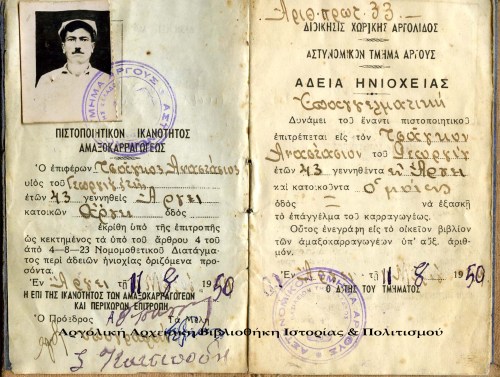 ΠΙΣΤΟΠΟΙΗΤΙΚΟΝ ΙΚΑΝΟΤΗΤΟΣ
ΑΜΑΞΟΚΑΡΡΑΓΩΓΕΩΣ
Ο ἐπιφέρων Τσάγκος Αναστάσιος
υἱὸς τοῦ Γεωργίου
ἐτῶν 43 γεννηθεὶς Άργει
κατοικῶν Άργει ὁδὸς
ἐκρίθη ὑπὸ τῆς ἐπιτροπῆς
ὡς κεκτημένος τὰ ὑπὸ τοῦ ἄρθρου 4 τοῦ
ἀπὸ 4—8—23 Νομοθετικοῦ Διατάγμα-
τος περὶ ἀδειῶν ἡνιοχείας ὁριζόμενα προ-
σόντα.
Ἐν Άργει τῇ 11 8 1950
Η ΕΠΙ ΤΗΣ ΙΚΑΝΟΤΗΤΟΣ ΤΩΝ ΑΜΑΞΟΚΑΡΡΑΓΩΓΕΩΝ
ΚΑΙ ΠΕΡΙΧΩΡΩΝ ΕΠΙΤΡΟΠΗ
Ὁ Πρόεδρος Τὰ Μέλη
Αριθ. πρωτ. 33
ΔΙΟΙΚΗΣΙΣ ΧΩΡ/ΚΗΣ ΑΡΓΟΛΙΔΟΣ
ΑΣΤΥΝΟΜΙΚΟΝ ΤΜΗΜΑ ΑΡΓΟΥΣ
ΑΔΕΙΑ ΗΝΙΟΧΕΙΑΣ
Επαγγελματική
Δυνάμει τοῦ ἔναντι πιστοποιητικοῦ
ἐπιτρέπεται εἰς τὸν Τσάγκον
Αναστάσιον τοῦ Γεωργίου
ἐτῶν 43 γεννηθέντα Άργει
καὶ κατοικοῦντα Ομοίως
ὁδὸς νὰ ἐξασκῇ
τὸ ἐπάγγελμα τοῦ καρραγωγέως.
Οὗτος ἐνεγράφη εἰς τὸ οἰκεῖον βιβλίον
τῶν ἀμαξοκαρραγωγέων ὑπ' αὔξ. ἀριθ-
μόν.
Ἐν τῇ 11 8 1950
Ο Δ/ΤΗΣ ΤΟΥ ΤΜΗΜΑΤΟΣ
Αργολική Αρχειακή Βιβλιοθήκη Ιστορίας & Πολιτισμού